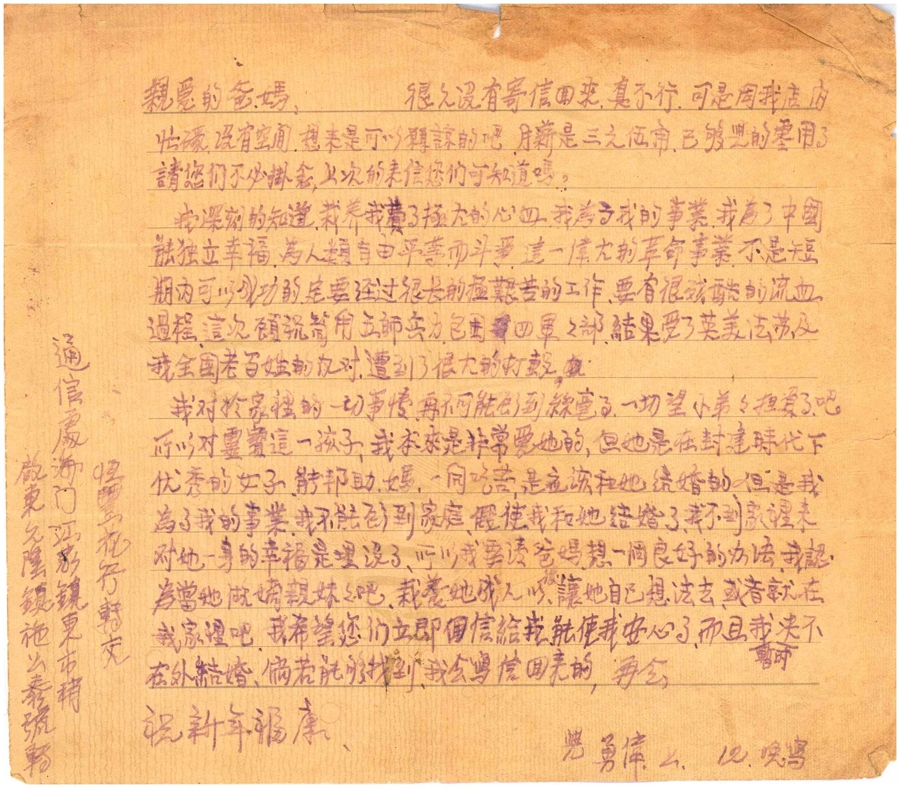 親愛的爸媽、 很久没有寄信回來,真不行.可是因我店内
忙碌,没有空间,想來是可以願諒的吧.月薪是三元伍角,已够兒的零用了
請您们不必掛念.上次的來信您们可知道嗎?
我深刻的知道,栽养我費了極大的心血.我為了我的事業,我為了中國
能独立幸福.為人類自由平等而斗爭.這一偉大的革命事業.不是短
期内可以成功的,定要经过很长的極艱苦的工作.要有很残酷的流血
過程.這次顧祝筒用五師兵力包围四軍之部.結果受了英美法苏及
我全国老百姓的反对.遭到了很大的打擊.
我对於家裡的一切事情,再不可能顧到絲毫了.一切望小弟々担負了吧
所以对靈鶯這一孩子,我本來是非常愛她的,但她是在封建時代下
优秀的女子.能帮助.媽.一同吃苦.是应该和她结婚的.但是我
為了我的事業.我不能顧到家庭.假使我和她结婚了.我不到家裡来
对她一身的幸福是埋没了.所以我要请爸媽想一個良好的办法.我認
為當她做嫡親妹々吧.栽養她成人以後讓她自己想法去.或者就在
我家裡吧.我希望您们立即個信給我.能使我安心了.而且我决不
暫時
在外结婚.倘若能够找到.我会寫信回來的.再会
祝新年福康.
兒 勇偉.上. 12.晚寫
花行轉交
通信處海门江家鎮東市梢
啟東久隆鎮施公泰號轉